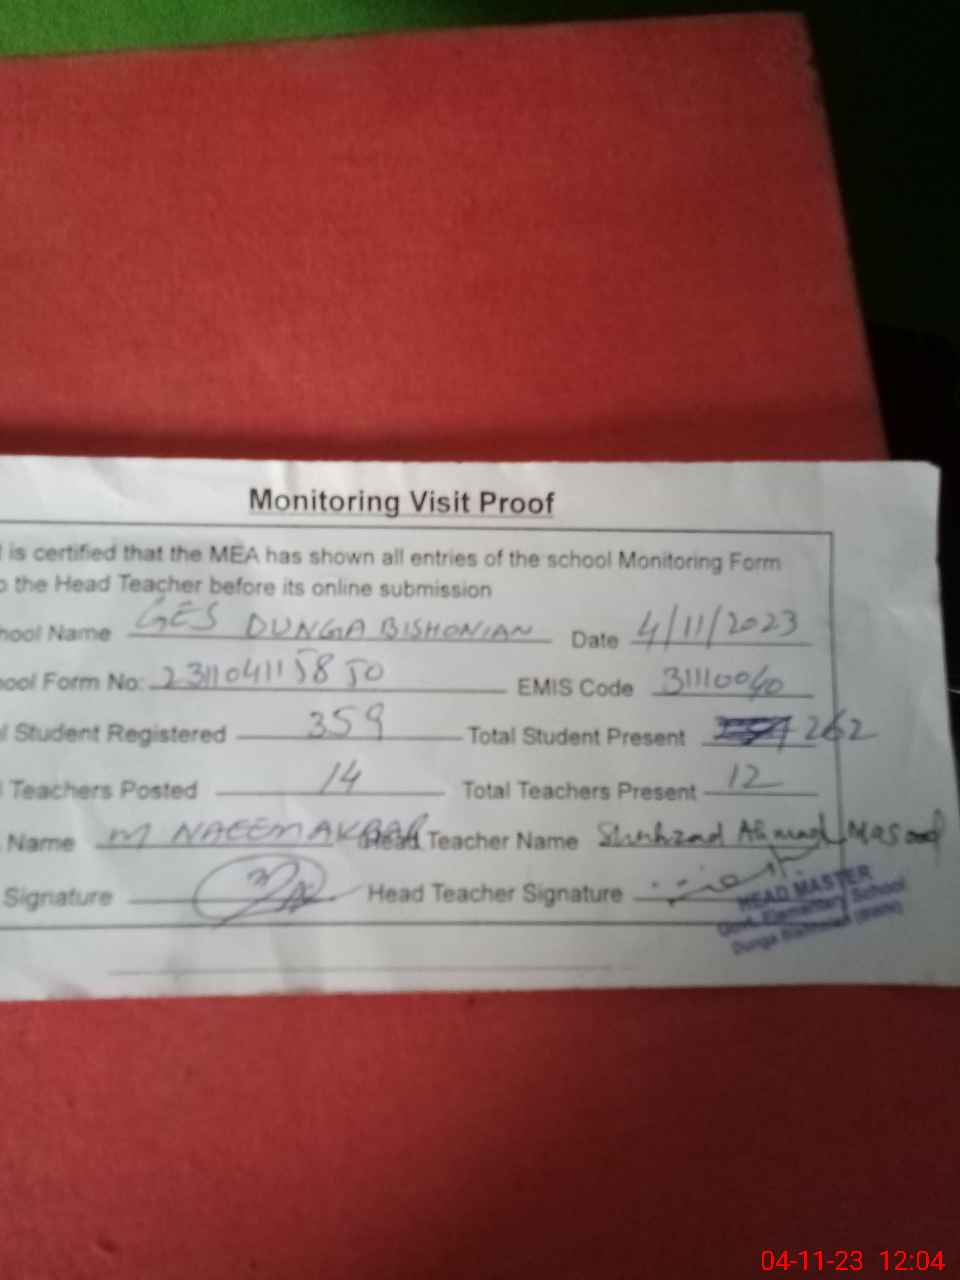 Monitoring Visit Proof
is certified that the MEA has shown all entries of the school Monitoring Form
the Head Teacher before its online submission
hool Name GES DUNGA BISHONIAN Date 4/11/2023
ool Form No: 231104115850 EMIS Code 31110040
l Student Registered 359 Total Student Present 262
Teachers Posted 14 Total Teachers Present 12
Name M NAEEM AKBAR Head Teacher Name Shahzad Ahmad Masood
Signature Head Teacher Signature
HEAD MASTER
Govt. Elementary School
Dunga
04-11-23 12:04